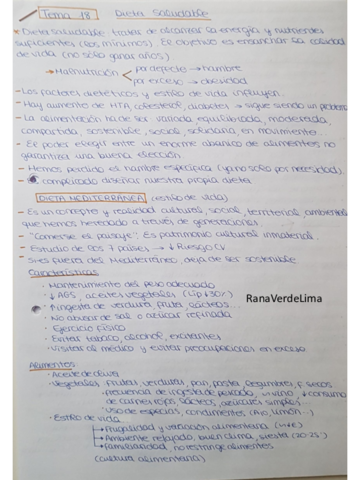 Tema 18 Dieta Saludable
* Dieta saludable: trata de alcanzar la energía y nutrientes
suficientes (los mínimos). El objetivo es ensanchar la calidad
de vida (no solo ganar años)
→ Malnutrición por defecto → hambre
por exceso → obesidad
- Los factores dietéticos y estilo de vida influyen.
- Hay aumento de HTA, colesterol, diabetes → sigue siendo un problema
- La alimentación ha de ser variada, equilibrada, moderada,
compartida, sostenible, social, solidaria, en movimiento...
- El poder elegir entre un enorme abanico de alimentos no
garantiza una buena elección.
- Hemos perdido el hambre específica (ya no solo por necesidad).
- complicado diseñar nuestra propia dieta.
DIETA MEDITERRÁNEA (estilo de vida)
- Es un concepto y realidad cultural, social, territorial, ambiental
que hemos heredado a través de generaciones.
- "Comerse el paisaje". Es patrimonio cultural inmaterial.
- Estudio de los 7 países → ↓ Riesgo CV
- Si es fuera del Mediterráneo deja de ser sostenible
Características
· Mantenimiento del peso adecuado
· ↓ AGS, aceites vegetales (Lip ↓30%)
· ↑ ingesta de verdura, frutas, lácteos...
· No abusar de sal o azúcar refinada
· Ejercicio físico
· Evitar tabaco, alcohol, excitantes
· Visitas al médico y evitar preocupaciones en exceso
RanaVerdeLima
Alimentos
· Aceite de oliva
· Vegetales, frutas, verduras, pan, pasta, legumbres, f. secos
· Frecuencia de ingesta de pescado, vino ↓ consumo
de carnes rojas, lácteos, azúcares simples
· Uso de especias, condimentos (ajo, limón...)
· Estilo de vida
→ Frugalidad y variación alimentaria
→ Ambiente relajado, buen clima, siesta (20-25')
→ Familiaridad, no restringe alimentos
(cultura alimentaria)